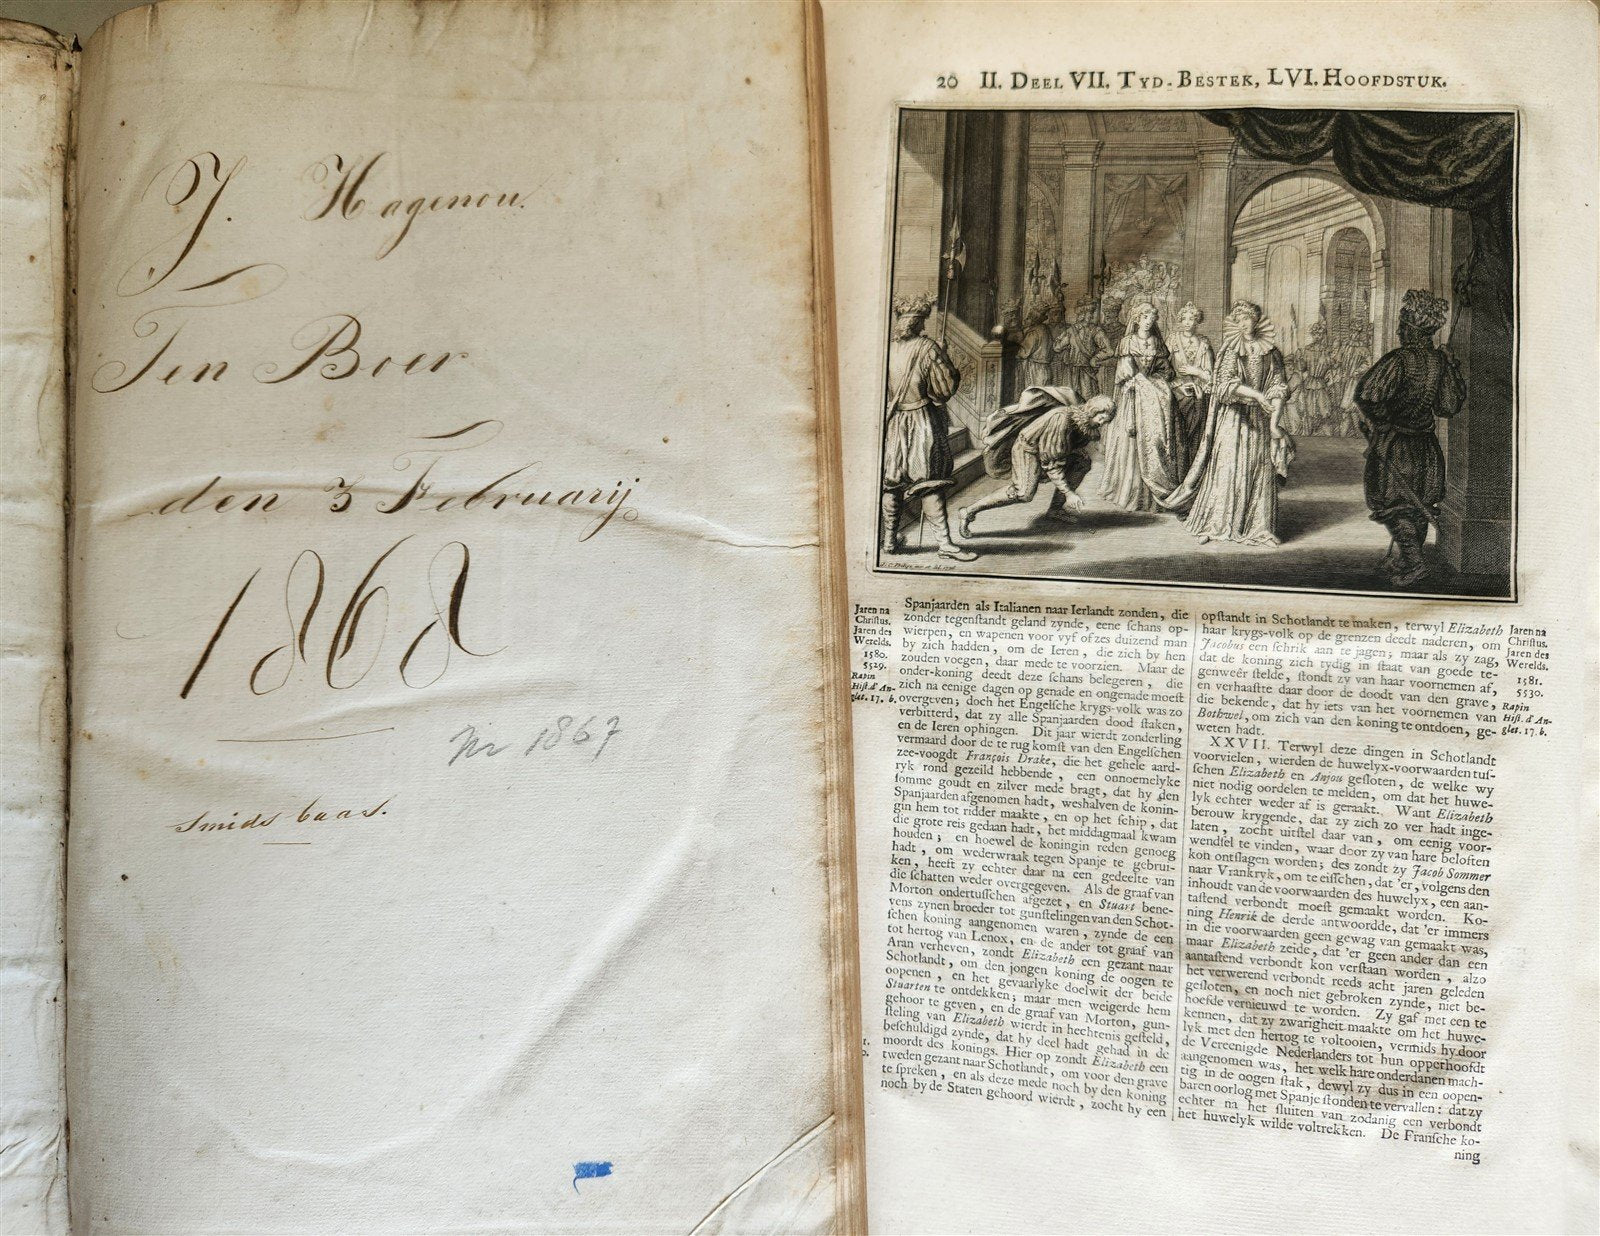 J. Hagenou.
Ten Boer
den 3 Februarij
1868
Nr 1867
Smids baas.
20 II. DEEL VII. TYD-BESTEK, LVI. HOOFDSTUK.
Jaren na
Christus.
Jaren des
Werelds.
1580.
5529.
Rapin
Hist. d'An-
glet. 17. b.
Spanjaarden als Italianen naar Ierlandt zonden, die
zonder tegenstandt geland zynde, eene schans op-
wierpen, en wapenen voor vyf of zes duizend man
by zich hadden, om de Ieren, die zich by hen
zouden voegen, daar mede te voorzien. Maar de
onder-koning deedt deze schans belegeren, die
zich na eenige dagen op genade en ongenade moest
overgeven; doch het Engelsche krygs-volk was zo
verbitterd, dat zy alle Spanjaarden dood staken,
en de Ieren ophingen. Dit jaar wierdt zonderling
vermaard door de te rug komst van den Engelschen
zee-voogdt François Drake, die het gehele aard-
ryk rond gezeild hebbende, een onnoemelyke
somme goudt en zilver mede bragt, dat hy den
Spanjaarden afgenomen hadt, weshalven de konin-
gin hem tot ridder maakte, en op het schip, dat
die grote reis gedaan hadt, het middagmaal kwam
houden; en hoewel de koningin reden genoeg
hadt, om wederwraak tegen Spanje te gebrui-
ken, heeft zy echter daar na een gedeelte van
die schatten weder overgegeven. Als de graaf van
Morton ondertusschen afgezet, en Stuart bene-
vens zynen broeder tot gunstelingen van den Schot-
schen koning aangenomen waren, zynde de een
tot hertog van Lenox, en de ander tot graaf van
Aran verheven, zondt Elizabeth een gezant naar
Schotlandt, om den jongen koning de oogen te
oopenen, en het gevaarlyke doelwit der beide
Stuarten te ontdekken; maar men weigerde hem
gehoor te geven, en de graaf van Morton, gun-
steling van Elizabeth wierdt in hechtenis gesteld,
beschuldigd zynde, dat hy deel hadt gehad in de
moordt des konings. Hier op zondt Elizabeth een
tweden gezant naar Schotlandt, om voor den grave
te spreken, en als deze mede noch by den koning
noch by de Staten gehoord wierdt, zocht hy een
opstandt in Schotlandt te maken, terwyl Elizabeth
haar krygs-volk op de grenzen deedt naderen, om
Jacobus een schrik aan te jagen; maar als zy zag,
dat de koning zich tydig in staat van goede te-
genweer stelde, stondt zy van haar voornemen af,
en verhaastte daar door de doodt van den grave,
die bekende, dat hy iets van het voornemen van
Bothwel, om zich van den koning te ontdoen, ge-
weten hadt.
XXVII. Terwyl deze dingen in Schotlandt
voorvielen, wierden de huwelyx-voorwaarden tus-
schen Elizabeth en Anjou gesloten, de welke wy
niet nodig oordelen te melden, om dat het huwe-
lyk echter weder af is geraakt. Want Elizabeth
berouw krygende, dat zy zich zo ver hadt inge-
laten, zocht uitstel daar van, om eenig voor-
wendsel te vinden, waar door zy van hare beloften
kon ontslagen worden; des zondt zy Jacob Sommer
naar Vrankryk, om te eisschen, dat 'er, volgens den
inhoudt van de voorwaarden des huwelyx, een aan-
tastend verbondt moest gemaakt worden. Ko-
ning Henrik de derde antwoordde, dat 'er immers
in die voorwaarden geen gewag van gemaakt was,
maar Elizabeth zeide, dat 'er geen ander dan een
aantastend verbondt kon verstaan worden, alzo
het verwerend verbondt reeds acht jaren geleden
gesloten, en noch niet gebroken zynde, niet be-
hoefde vernieuwd te worden. Zy gaf met een te
kennen, dat zy zwarigheit maakte om het huwe-
lyk met den hertog te voltooien, vermids hy door
de Vereenigde Nederlanders tot hun opperhoofdt
aangenomen was, het welk hare onderdanen mach-
tig in de oogen stak, dewyl zy dus in een oopen-
baren oorlog met Spanje stonden te vervallen: dat zy
echter na het sluiten van zodanig een verbondt
het huwelyk wilde voltrekken. De Fransche ko-
ning
Jaren na
Christus.
Jaren des
Werelds.
1581.
5530.
Rapin
Hist. d'An-
glet. 17. b.